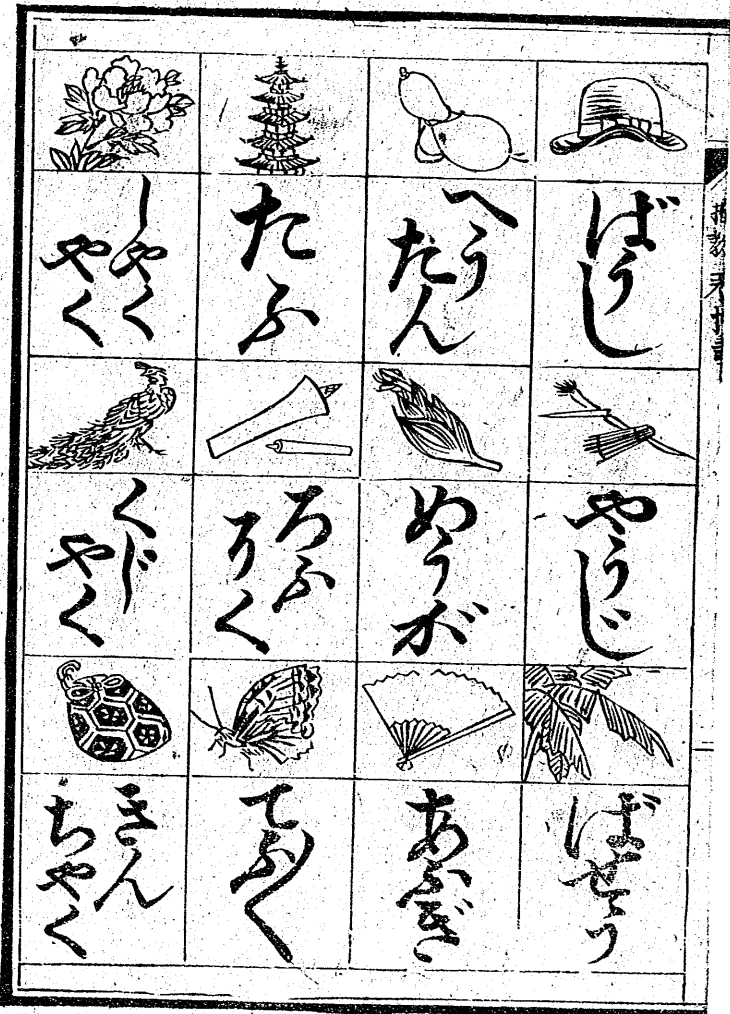 ばうし
へう
たん
たふ
しやく
やく
やうじ
めうが
らふ
そく
くじ
やく
ばせう
あふぎ
てふ〱
きん
ちやく